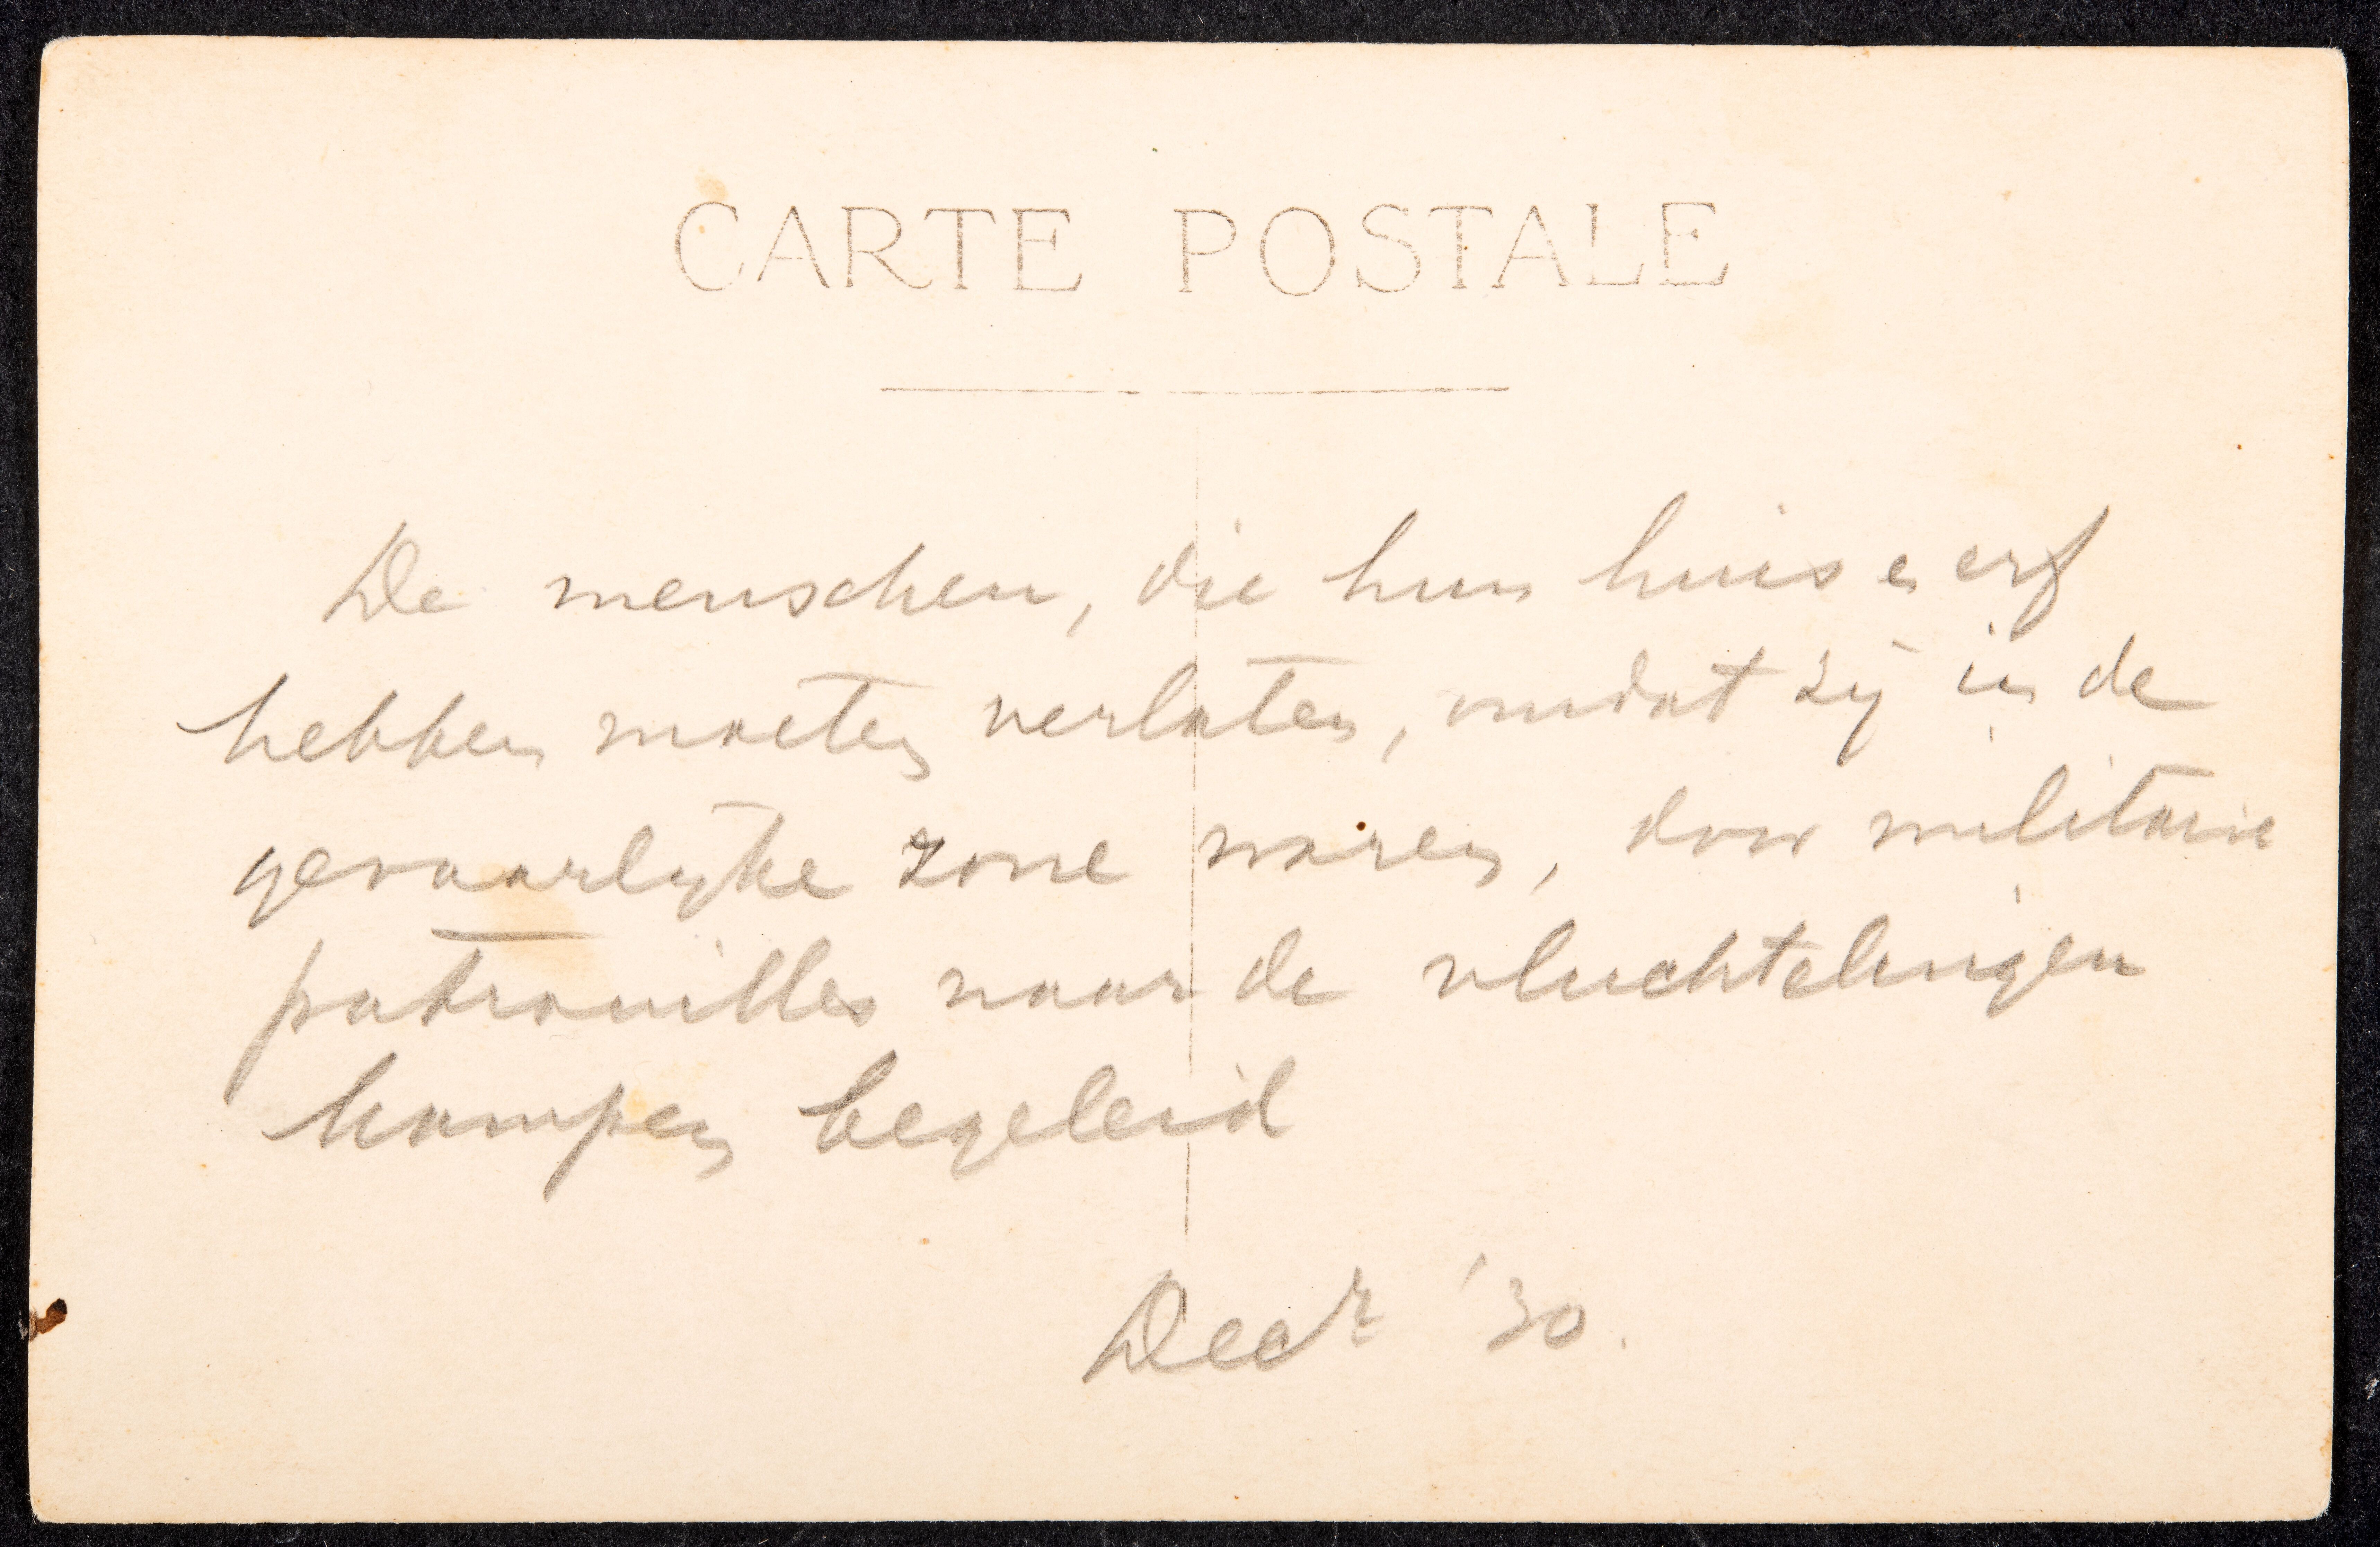 CARTE POSTALE
De menschen, die hun huis en erf
hebben moeten verlaten, omdat zij in de
gevaarlijke zone waren, door militaire
patrouilles naar de vluchtelingen
kampen begeleid
Decr '30.